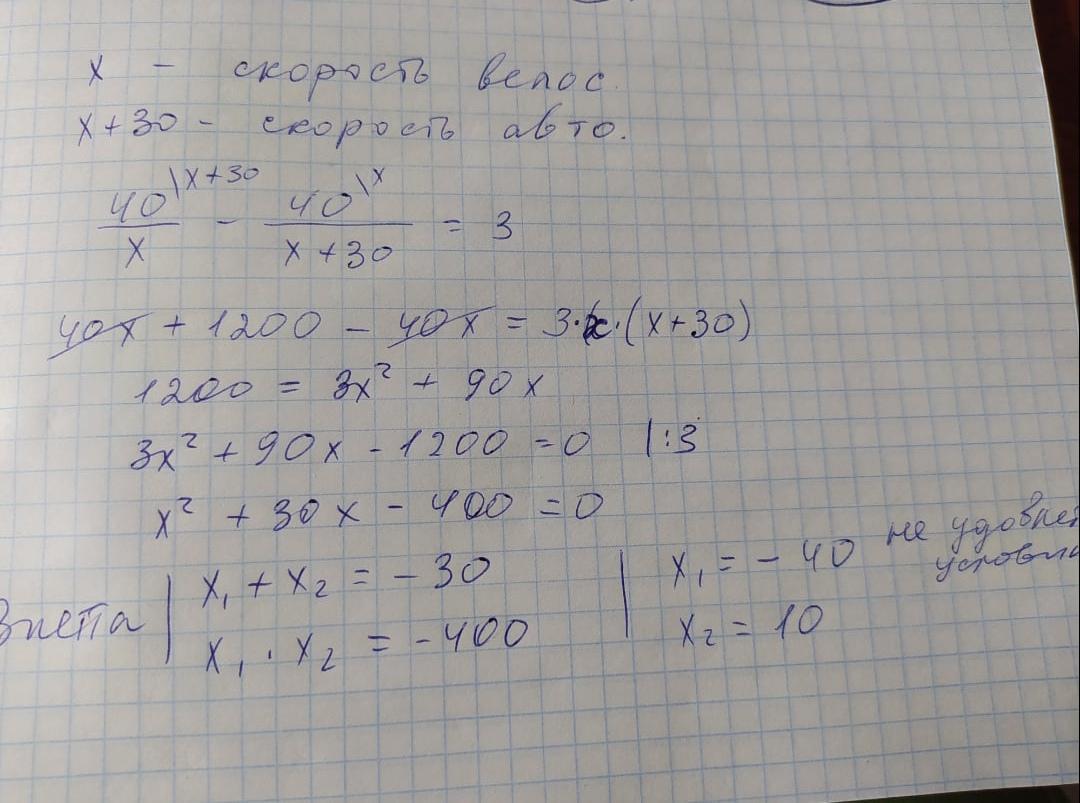 x - скорость велос.
x+30 - скорость авто.
40\x+30 / x - 40\x / x+30 = 3
40x + 1200 - 40x = 3·x·(x+30)
1200 = 3x² + 90x
3x² + 90x - 1200 = 0 |:3
x² + 30x - 400 = 0
Виета | x₁ + x₂ = -30 | x₁ = -40 не удовлет
x₁ · x₂ = -400 | x₂ = 10 услови